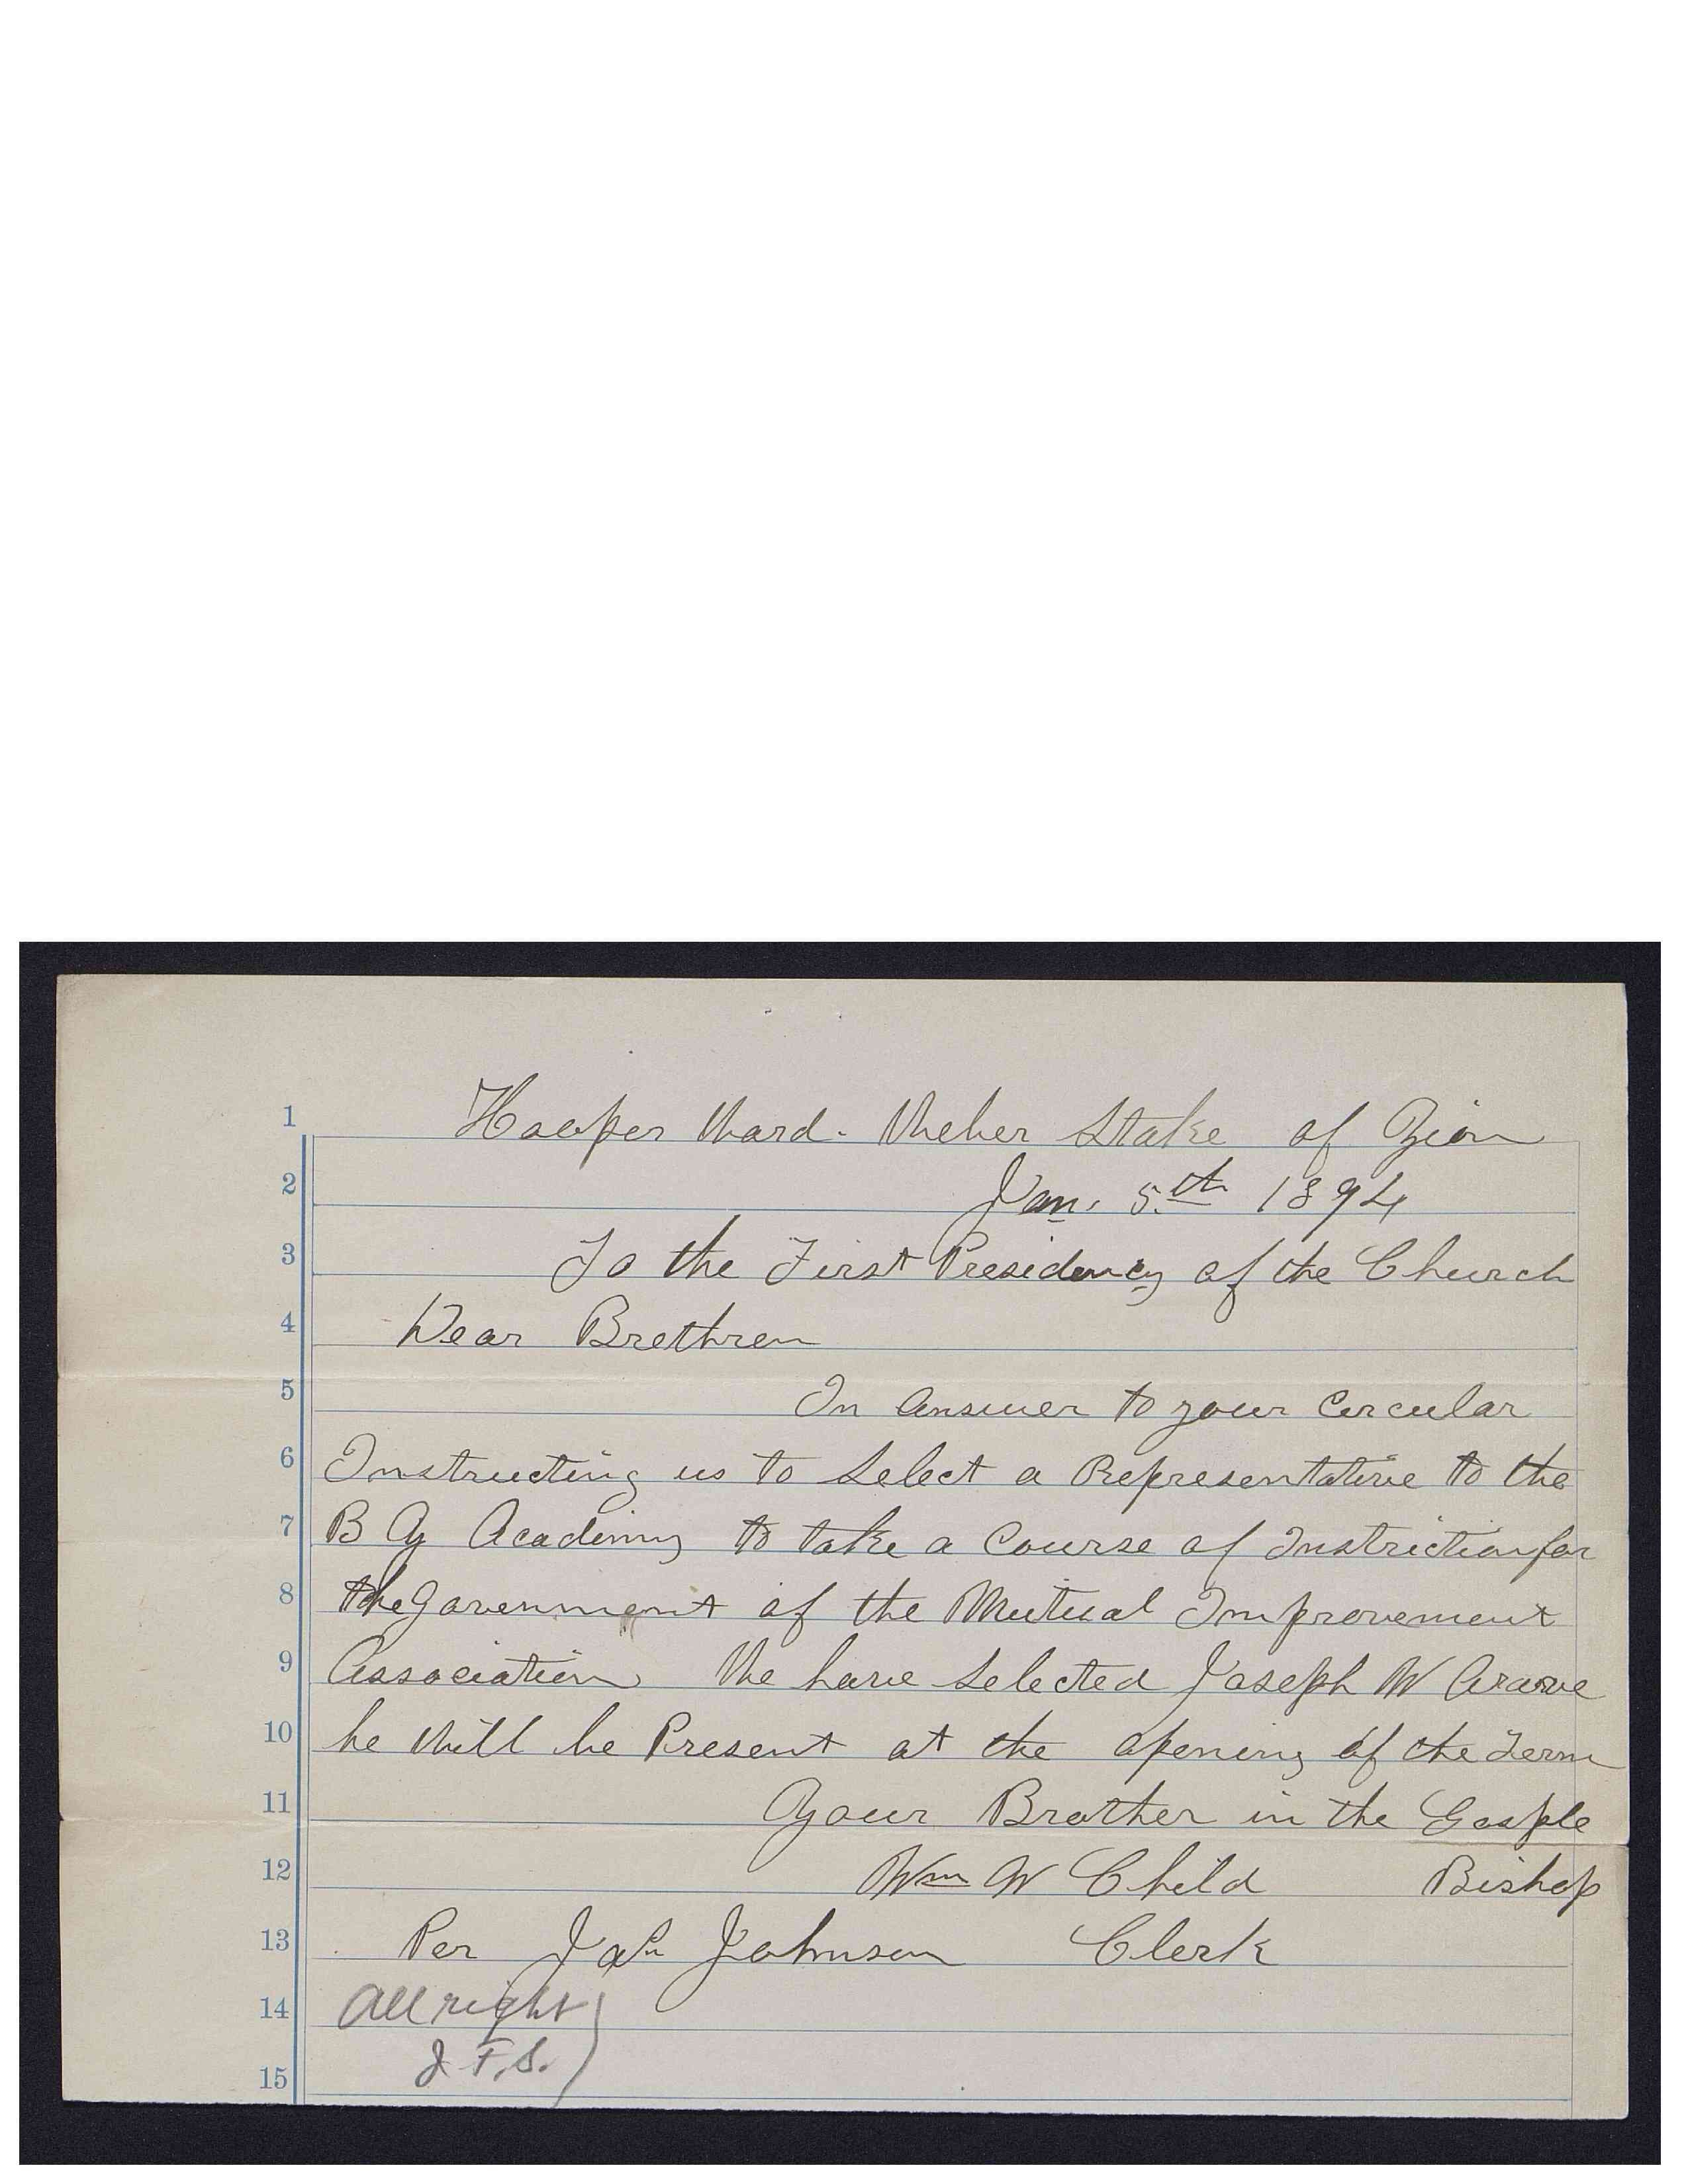 1 Hooper Ward. Weber Stake of Zion
2 Jan. 5.th 1894
3 To the First Presidency of the Church
4 Dear Brethren
5 In answer to your Cercular
6 Instructing us to Select a Representative to the
7 B Y Academy to take a Course of Instriction for
8 the Govenment of the Mutual Improvement
9 Association We have Selected Joseph W Arave
10 he Will be Present at the opening of the Term
11 Your Brother in the Gosple
12 Wm W Child Bishop
13 Per Johnson Clerk
14 All right
J. F. S.
15